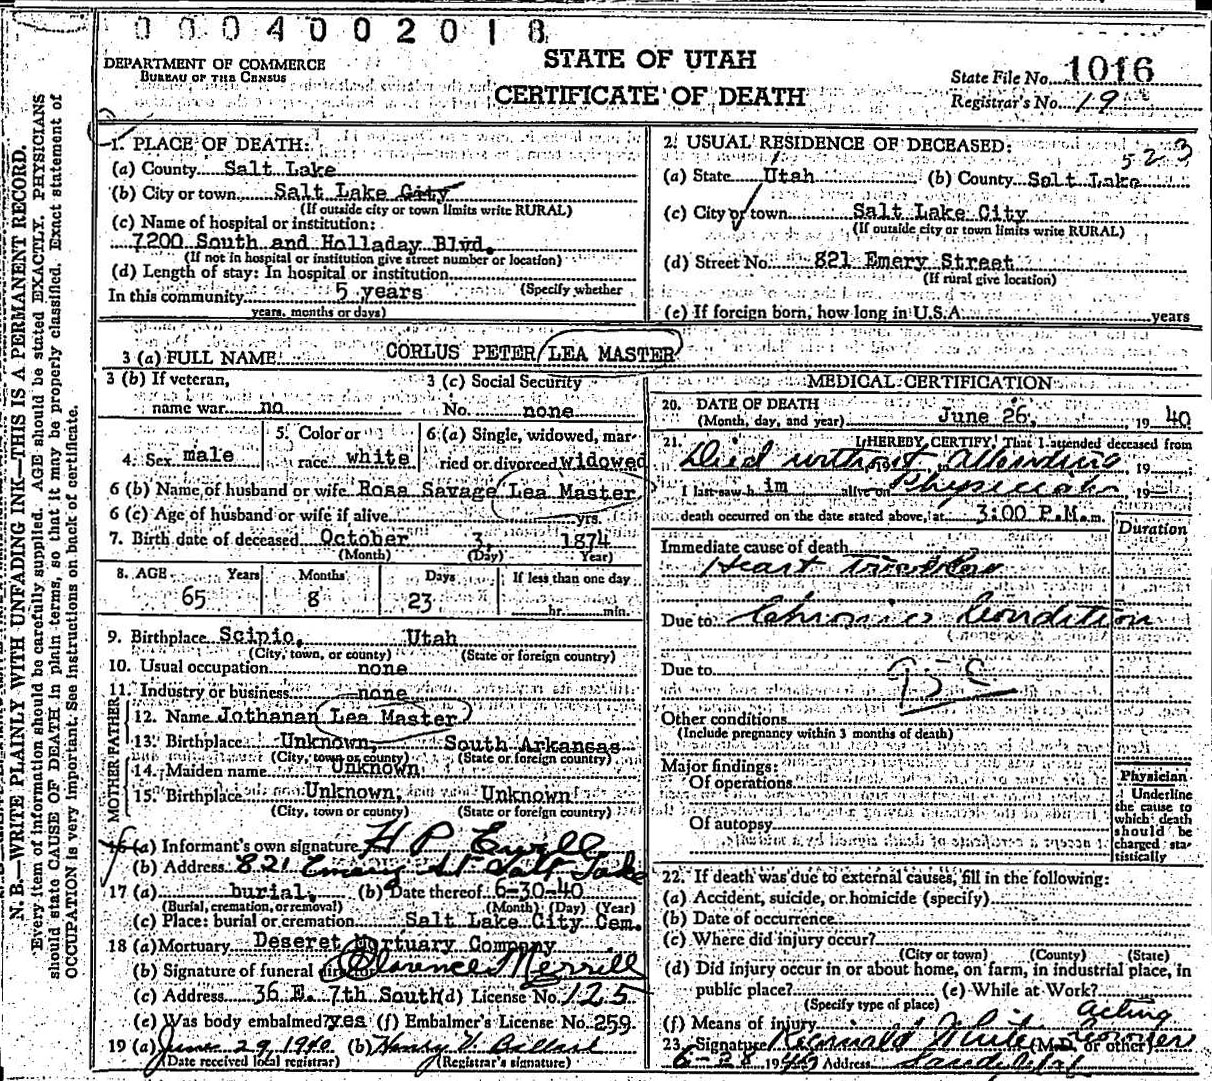 0004002018
DEPARTMENT OF COMMERCE
BUREAU OF THE CENSUS
STATE OF UTAH
CERTIFICATE OF DEATH
State File No. 1016
Registrar's No. 19
N. B.—WRITE PLAINLY WITH UNFADING INK—THIS IS A PERMANENT RECORD.
Every item of information should be carefully supplied. AGE should be stated EXACTLY. PHYSICIANS
should state CAUSE OF DEATH in plain terms, so that it may be properly classified. Exact statement of
OCCUPATION is very important. See instructions on back of certificate.
1. PLACE OF DEATH:
(a) County Salt Lake
(b) City or town Salt Lake City
(If outside city or town limits write RURAL)
(c) Name of hospital or institution:
7200 South and Holladay Blvd.
(If not in hospital or institution give street number or location)
(d) Length of stay: In hospital or institution
(Specify whether
In this community 5 years
years, months or days)
2. USUAL RESIDENCE OF DECEASED:
523
(a) State Utah (b) County Salt Lake
(c) City or town Salt Lake City
(If outside city or town limits write RURAL)
(d) Street No. 821 Emery Street
(If rural give location)
(e) If foreign born, how long in U.S.A. years
3 (a) FULL NAME CORLUS PETER LEA MASTER
3 (b) If veteran,
name war no
3 (c) Social Security
No. none
4. Sex male
5. Color or
race white
6 (a) Single, widowed, mar-
ried or divorced widowed
6 (b) Name of husband or wife Rosa Savage Lea Master
6 (c) Age of husband or wife if alive yrs.
7. Birth date of deceased October 3, 1874
(Month) (Day) Year)
8. AGE Years Months Days If less than one day
65 8 23 hr. min.
9. Birthplace Scipio, Utah
(City, town, or county) (State or foreign country)
10. Usual occupation none
11. Industry or business none
FATHER
12. Name Jothanan Lea Master
13. Birthplace Unknown, South Arkansas
(City, town or county) (State or foreign country)
MOTHER
14. Maiden name Unknown
15. Birthplace Unknown, Unknown
(City, town or county) (State or foreign country)
16 (a) Informant's own signature H P Ewell
(b) Address 821 Emery St Salt Lake
17 (a) burial, (b) Date thereof 6-30-40
(Burial, cremation, or removal) (Month) (Day) (Year)
(c) Place: burial or cremation Salt Lake City Cem.
18 (a) Mortuary Deseret Mortuary Company
(b) Signature of funeral director Clarence Merrill
(c) Address 36 E. 7th South (d) License No. 125
(e) Was body embalmed? yes (f) Embalmer's License No. 259
19 (a) June 29, 1940 (b) Henry V. Ballard
(Date received local registrar) (Registrar's signature)
MEDICAL CERTIFICATION
20. DATE OF DEATH
(Month, day, and year) June 26, 1940
21. I HEREBY CERTIFY, That I attended deceased from
Died without attending 19
I last saw h im alive on Physician 19
death occurred on the date stated above, at 3:00 P.M.m.
Duration
Immediate cause of death
Heart Trouble
Due to Chronic Condition
Due to
95C
Other conditions
(Include pregnancy within 3 months of death)
Major findings:
Of operations
Of autopsy
Physician
Underline
the cause to
which death
should be
charged sta-
tistically
22. If death was due to external causes, fill in the following:
(a) Accident, suicide, or homicide (specify)
(b) Date of occurrence
(c) Where did injury occur?
(City or town) (County) (State)
(d) Did injury occur in or about home, on farm, in industrial place, in
public place? (e) While at Work?
(Specify type of place)
(f) Means of injury Acting
23. Signature White Coroner (M.D. or other)
6-28 1940 Address Sandy Utah